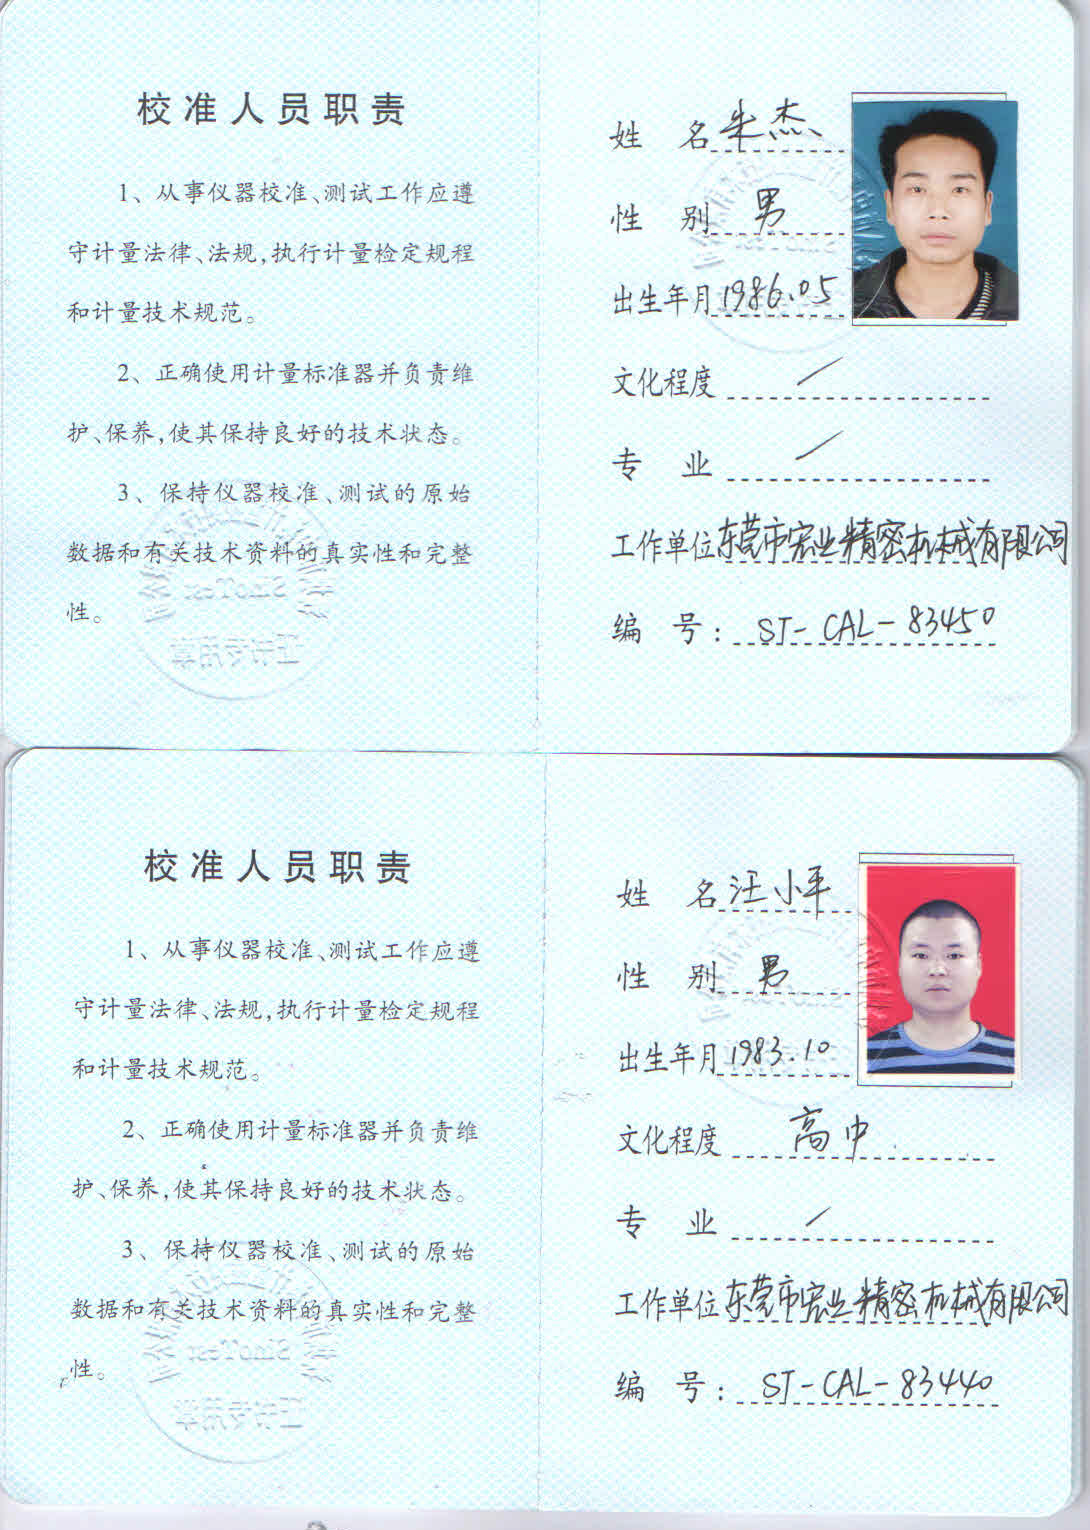 校准人员职责
1、从事仪器校准、测试工作应遵
守计量法律、法规,执行计量检定规程
和计量技术规范。
2、正确使用计量标准器并负责维
护、保养,使其保持良好的技术状态。
3、保持仪器校准、测试的原始
数据和有关技术资料的真实性和完整
性。
姓 名 朱杰
性 别 男
出生年月 1986.05
文化程度 /
专 业 /
工作单位 东莞市宏业精密机械有限公司
编 号: ST-CAL-83450
校准人员职责
1、从事仪器校准、测试工作应遵
守计量法律、法规,执行计量检定规程
和计量技术规范。
2、正确使用计量标准器并负责维
护、保养,使其保持良好的技术状态。
3、保持仪器校准、测试的原始
数据和有关技术资料的真实性和完整
性。
姓 名 汪小平
性 别 男
出生年月 1983.10
文化程度 高中
专 业 /
工作单位 东莞市宏业精密机械有限公司
编 号: ST-CAL-83440